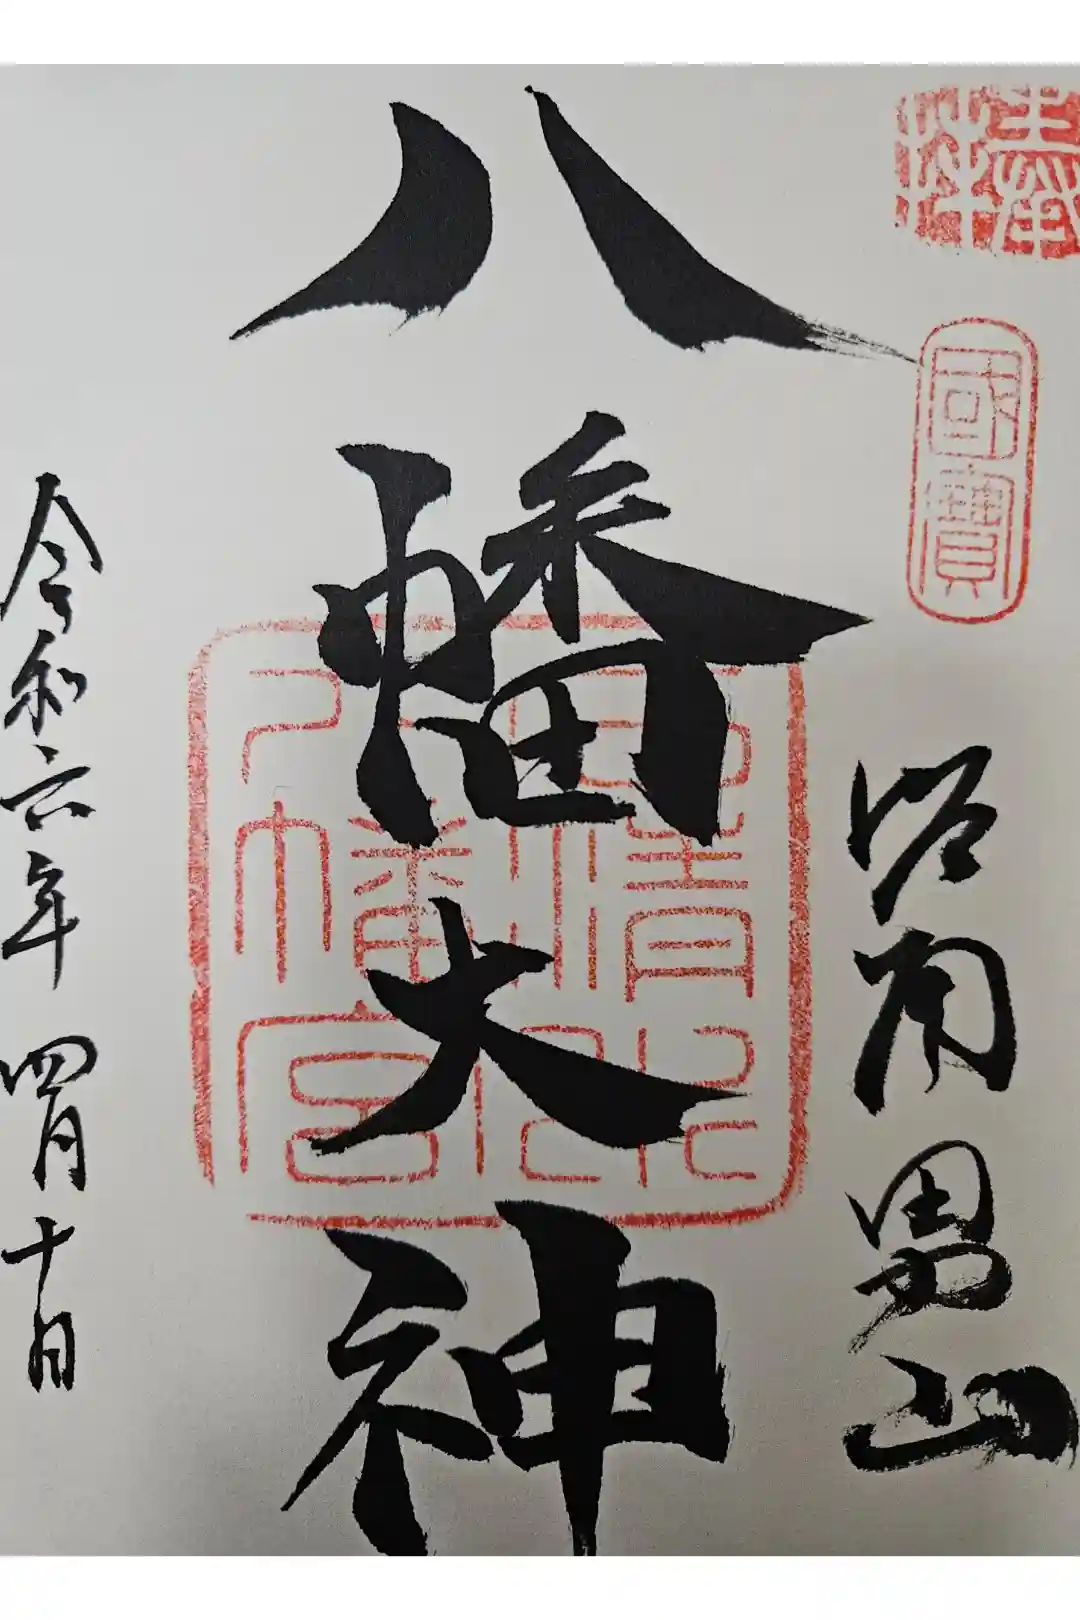 奉拝
國寶
洛南男山
八幡大神
石清水
八幡宮
令和六年 四月十日